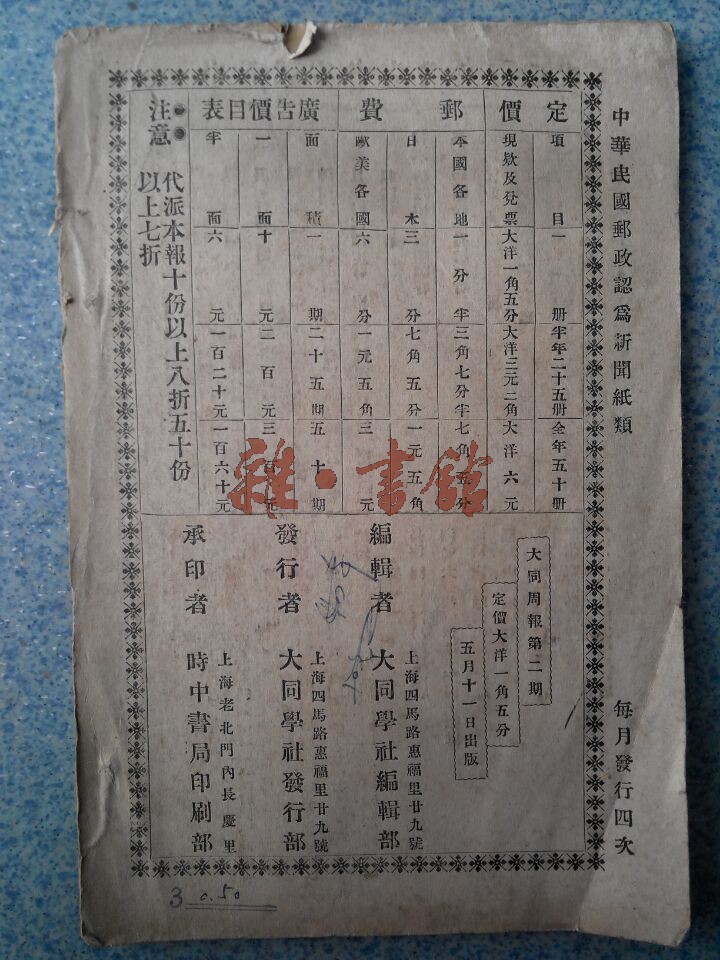 中華民國郵政認爲新聞紙類
每月發行四次
定價
郵費
廣告價目表
項目 一册 半年二十五册 全年五十册
現欵及兌票 大洋一角五分 大洋三元二角 大洋六元
本國各地 一分半 三角七分半 七角五分
日本 三分 七角五分 一元五角
歐美各國 六分 一元五角 三元
面積 一期 二十五期 五十期
一面 十元 二百元 三百元
半面 六元 一百二十元 一百六十元
注意
代派本報十份以上八折五十份
以上七折
雜·書館
大同周報第二期
定價大洋一角五分
五月十一日出版
上海四馬路惠福里廿九號
編輯者 大同學社編輯部
上海四馬路惠福里廿九號
發行者 大同學社發行部
上海老北門內長慶里
承印者 時中書局印刷部
3 0.50